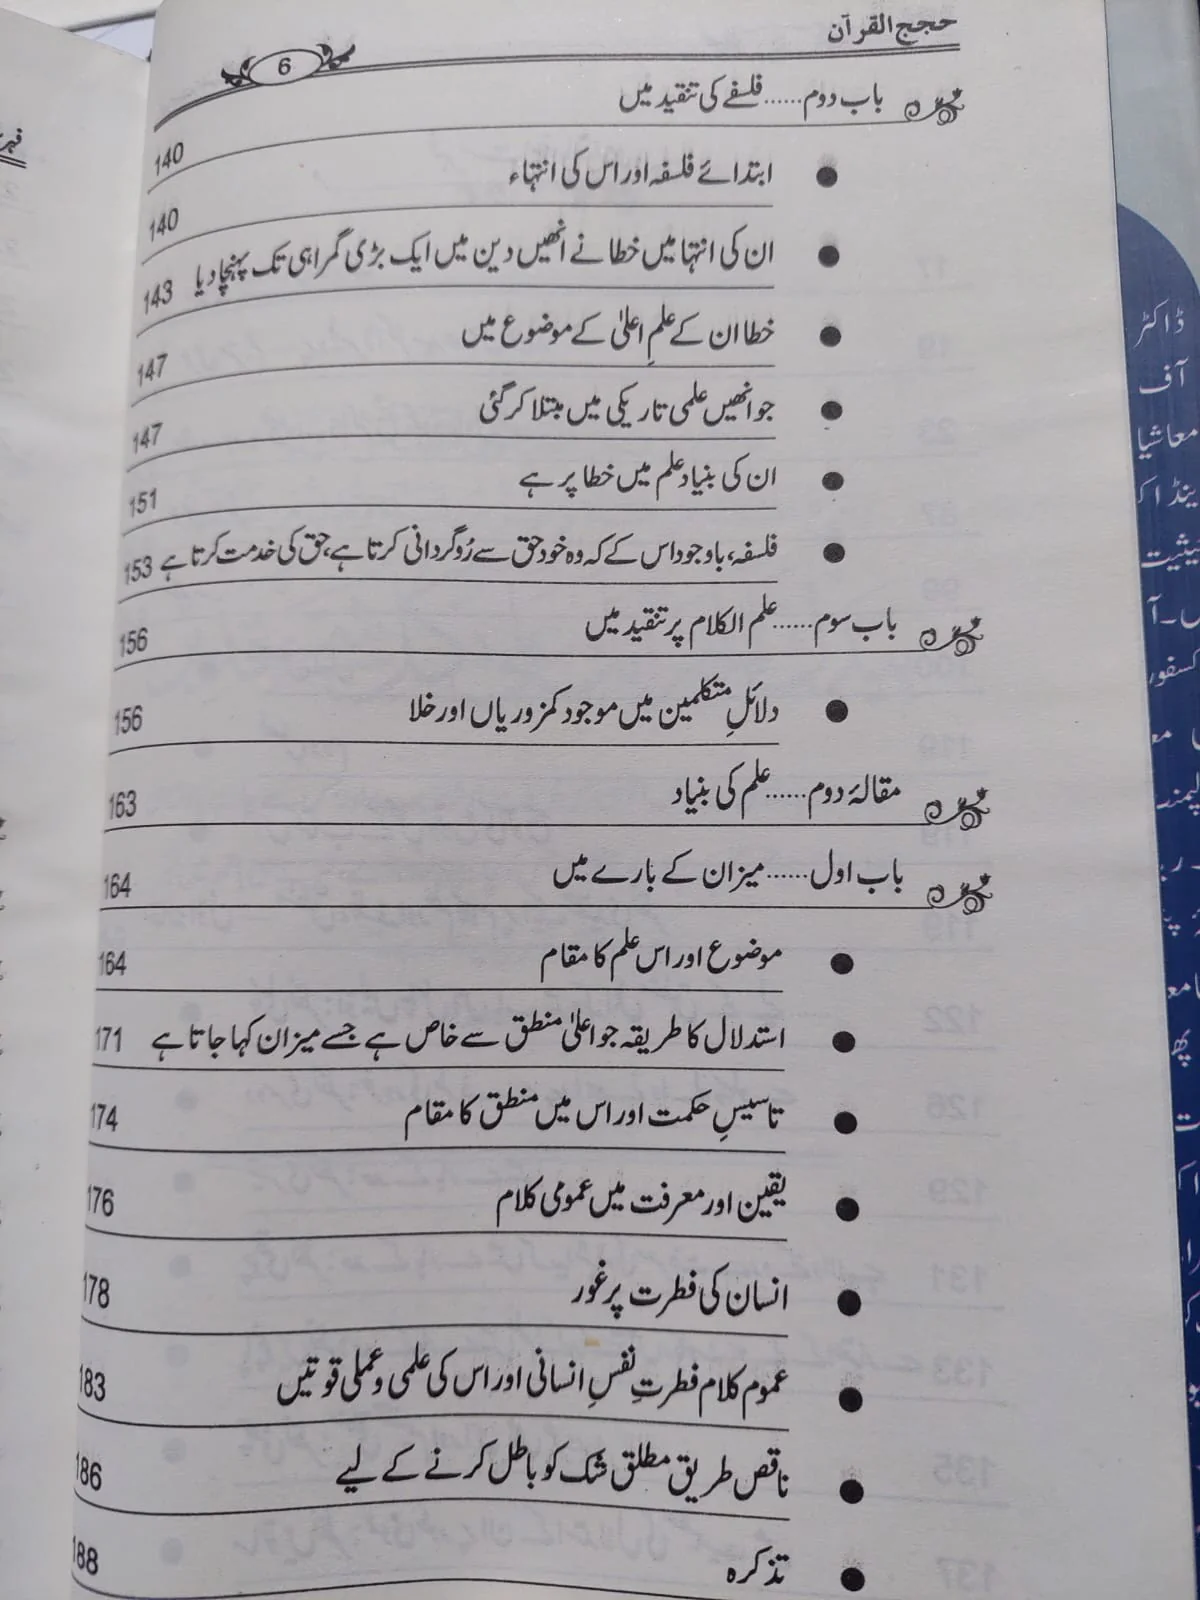 حجج القرآن
6
باب دوم......فلسفے کی تنقید میں 140
ابتدائے فلسفہ اور اس کی انتہاء 140
ان کی انتہا میں خطا نے انھیں دین میں ایک بڑی گمراہی تک پہنچا دیا 143
خطا ان کے علمِ اعلیٰ کے موضوع میں 147
جو انھیں علمی تاریکی میں مبتلا کر گئی 147
ان کی بنیاد علم میں خطا پر ہے 151
فلسفہ، باوجود اس کے کہ وہ خود حق سے رُوگردانی کرتا ہے، حق کی خدمت کرتا ہے 153
باب سوم......علم الکلام پر تنقید میں 156
دلائلِ متکلمین میں موجود کمزوریاں اور خلا 156
مقالۂ دوم......علم کی بنیاد 163
باب اول......میزان کے بارے میں 164
موضوع اور اس علم کا مقام 164
استدلال کا طریقہ جو اعلیٰ منطق سے خاص ہے جسے میزان کہا جاتا ہے 171
تاسیسِ حکمت اور اس میں منطق کا مقام 174
یقین اور معرفت میں عمومی کلام 176
انسان کی فطرت پر غور 178
عموم کلام فطرتِ نفسِ انسانی اور اس کی علمی و عملی قوتیں 183
ناقص طریق مطلق شک کو باطل کرنے کے لیے 186
تذکرہ 188
ڈاکٹر
آف
معاشیا